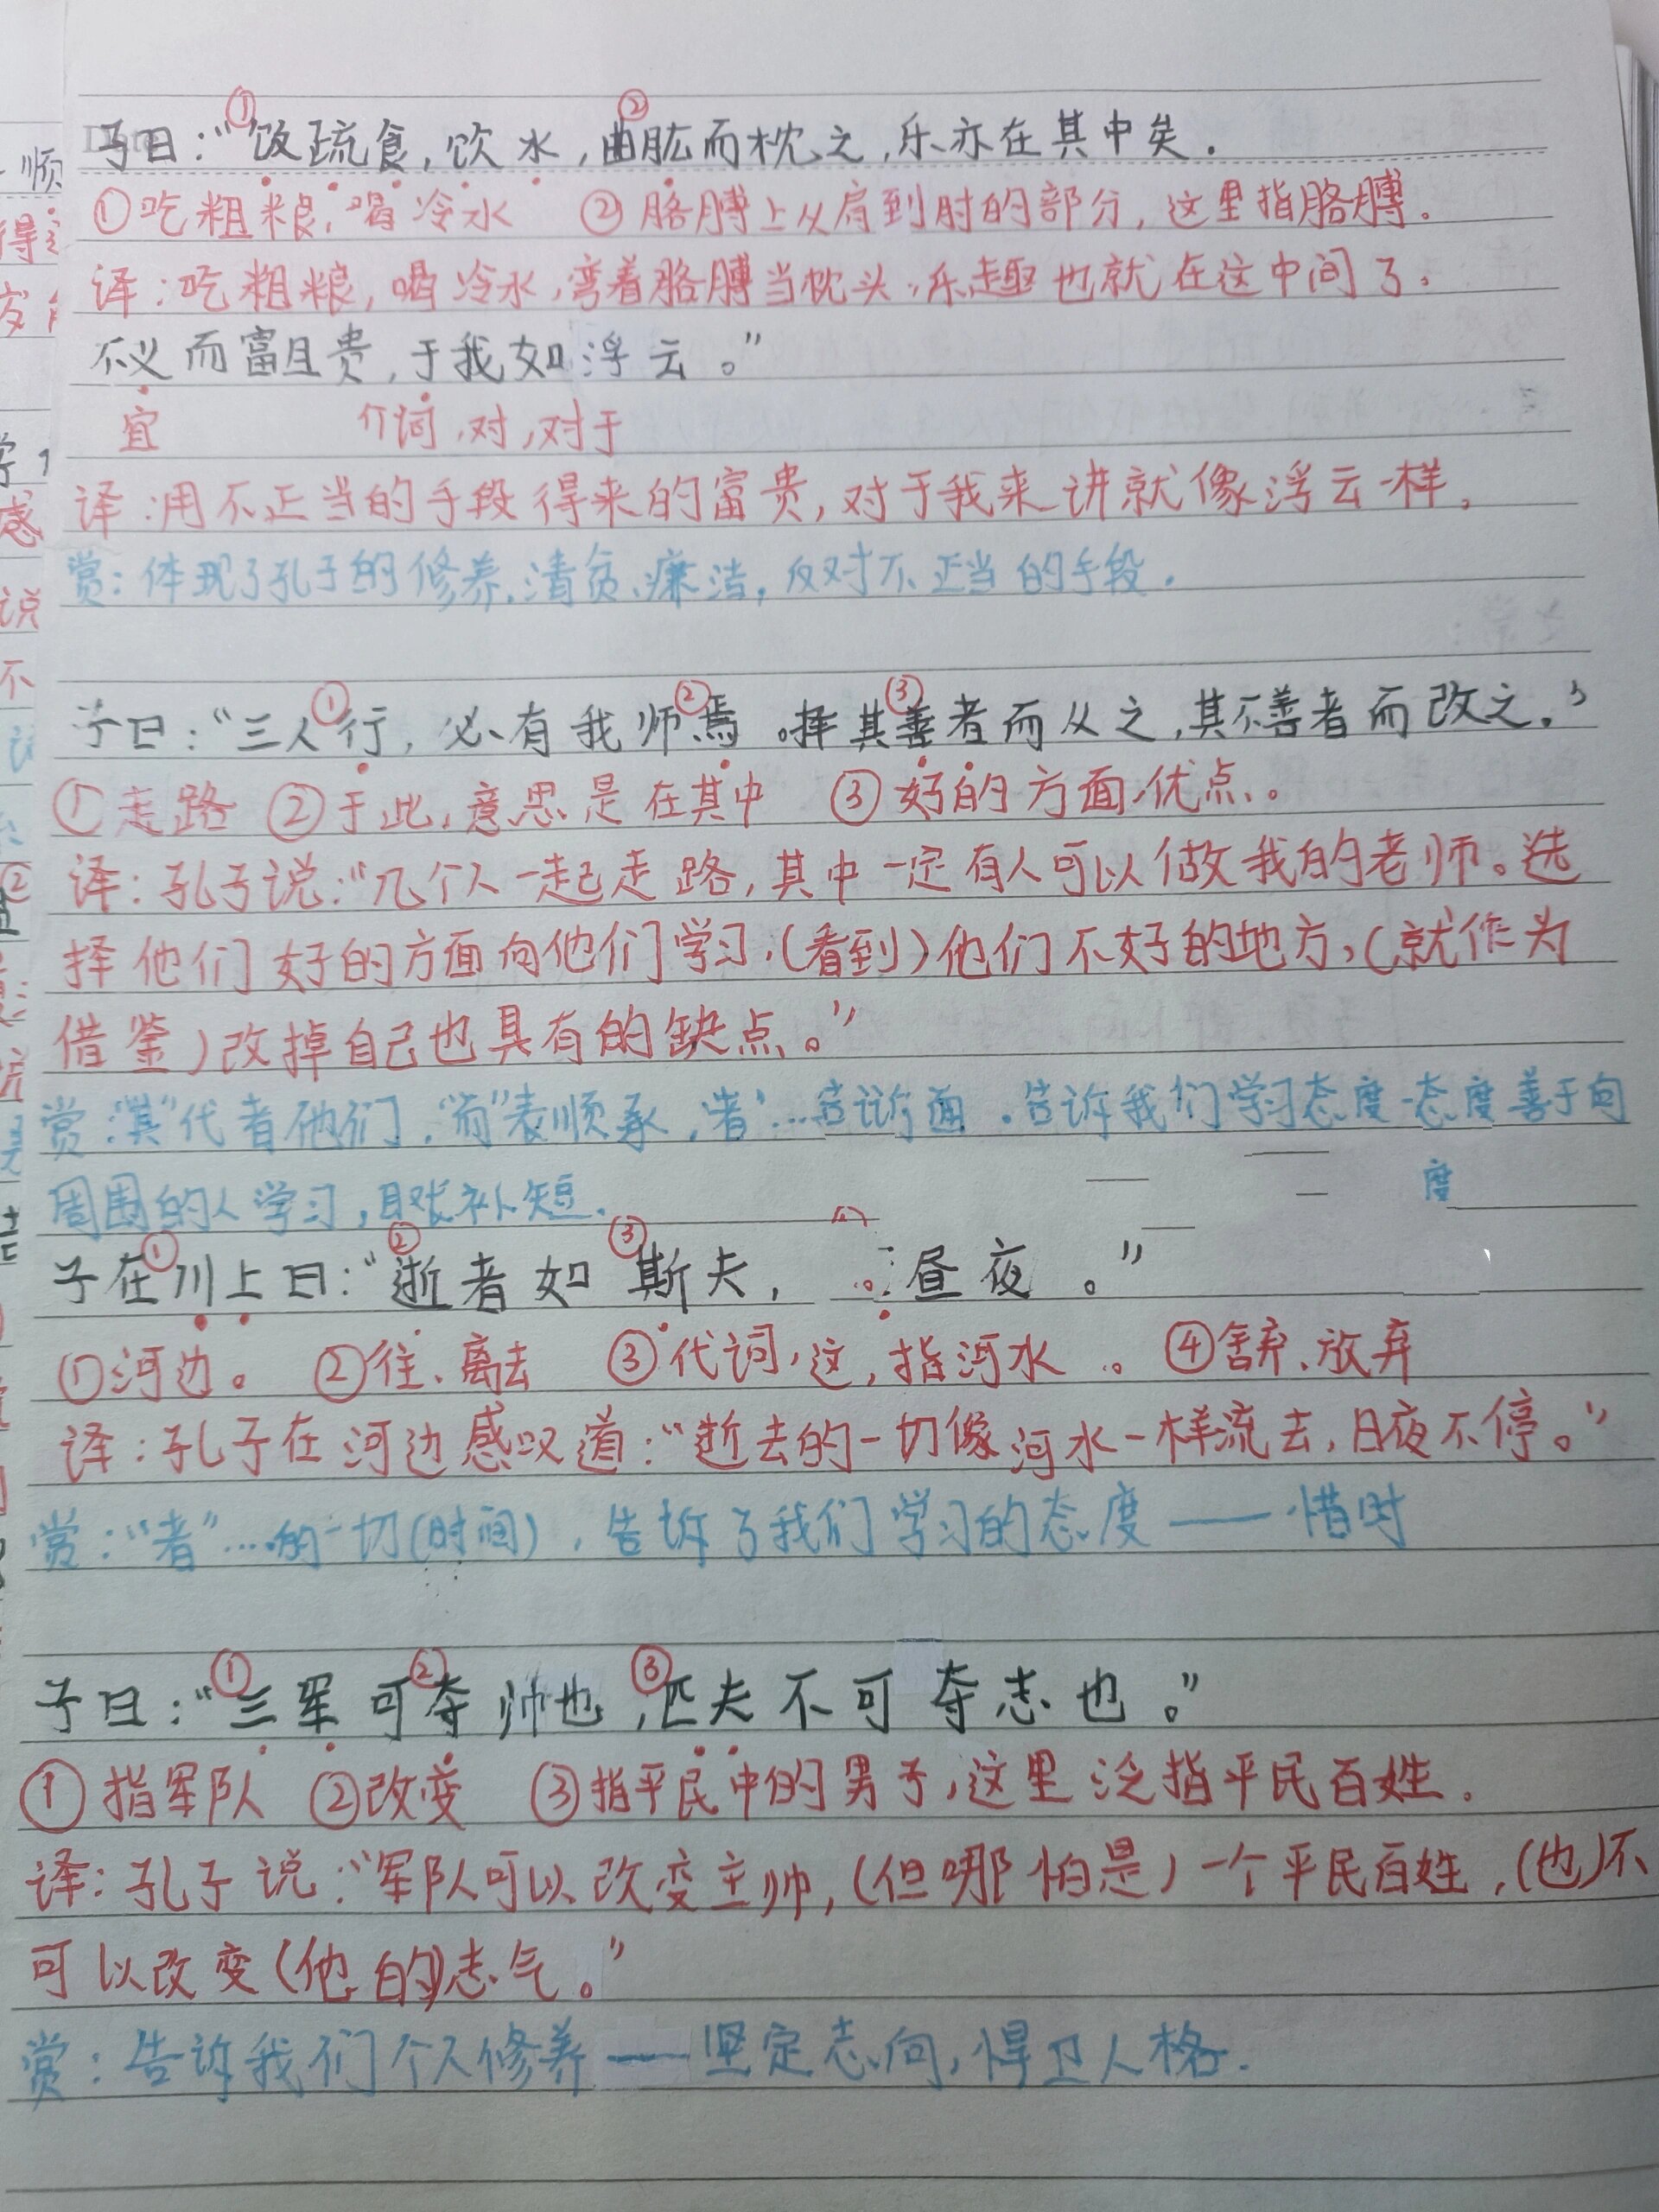 子曰：“饭疏食，饮水，曲肱而枕之，乐亦在其中矣．
①吃粗粮，喝冷水 ②胳膊上从肩到肘的部分，这里指胳膊。
译：吃粗粮，喝冷水，弯着胳膊当枕头，乐趣也就在这中间了。
不义而富且贵，于我如浮云。”
宜 介词，对，对于
译：用不正当的手段得来的富贵，对于我来讲就像浮云一样。
赏：体现了孔子的修养、清贫、廉洁，反对不正当的手段．
子曰：“三人行，必有我师焉。择其善者而从之，其不善者而改之。”
①走路 ②于此，意思是在其中 ③好的方面、优点。
译：孔子说：“几个人一起走路，其中一定有人可以做我的老师。选
择他们好的方面向他们学习，（看到）他们不好的地方，（就作为
借鉴）改掉自己也具有的缺点。”
赏：“其”代者他们，“而”表顺承，“者”…告诉 面．告诉我们学习态度 态度善于向
周围的人学习， 补短． 度
子在川上曰：“逝者如斯夫， 昼夜。”
①河边。 ②往、离去 ③代词，这，指河水。 ④舍弃、放弃
译：孔子在河边感叹道：“逝去的一切像河水一样流去，日夜不停。”
赏：“者”…的一切（时间），告诉了我们学习的态度——惜时
子曰：“三军可夺帅也，匹夫不可夺志也。”
①指军队 ②改变 ③指平民中的男子，这里泛指平民百姓．
译：孔子说：“军队可以改变主帅，（但哪怕是）一个平民百姓，（也）不
可以改变（他的）志气。”
赏：告诉我们个人修养——坚定志向，悍卫人格．